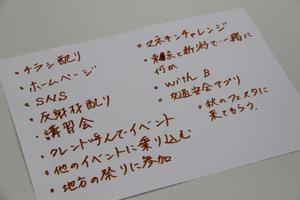 ・チラシ配り
・ホームページ
・SNS
・反射材配り
・講習会
・タレント呼んでイベント
・他のイベントに乗り込む
・地方の祭りに参加
・マネキンチャレンジ
・東京と新潟で一緒に
何か
・with B
・交通安全アプリ
・秋のフェスタに
来てもらう。